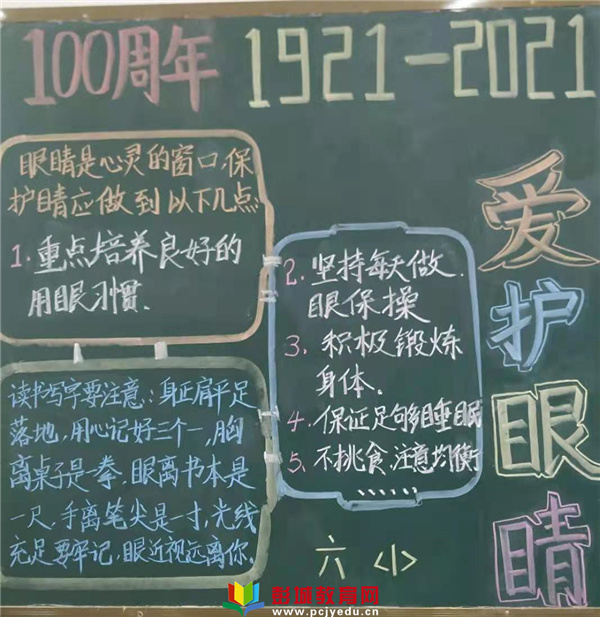 100周年 1921-2021
眼睛是心灵的窗口,保
护睛应做到以下几点
1.重点培养良好的
用眼习惯.
2.坚持每天做
眼保操
3.积极锻炼
身体.
4.保证足够睡眠
5.不挑食.注意均衡
......
读书写字要注意:身正肩平足
落地,用心记好三个一,胸
离桌子是一拳.眼离书本是
一尺.手离笔尖是一寸,光线
充足要牢记,眼近视远离你.
爱护眼睛
六<1>
创城教育网
www.pcjyedu.cn